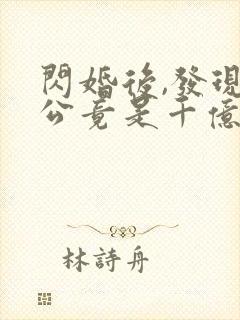 閃婚後,發現
公竟是千億
林詩舟